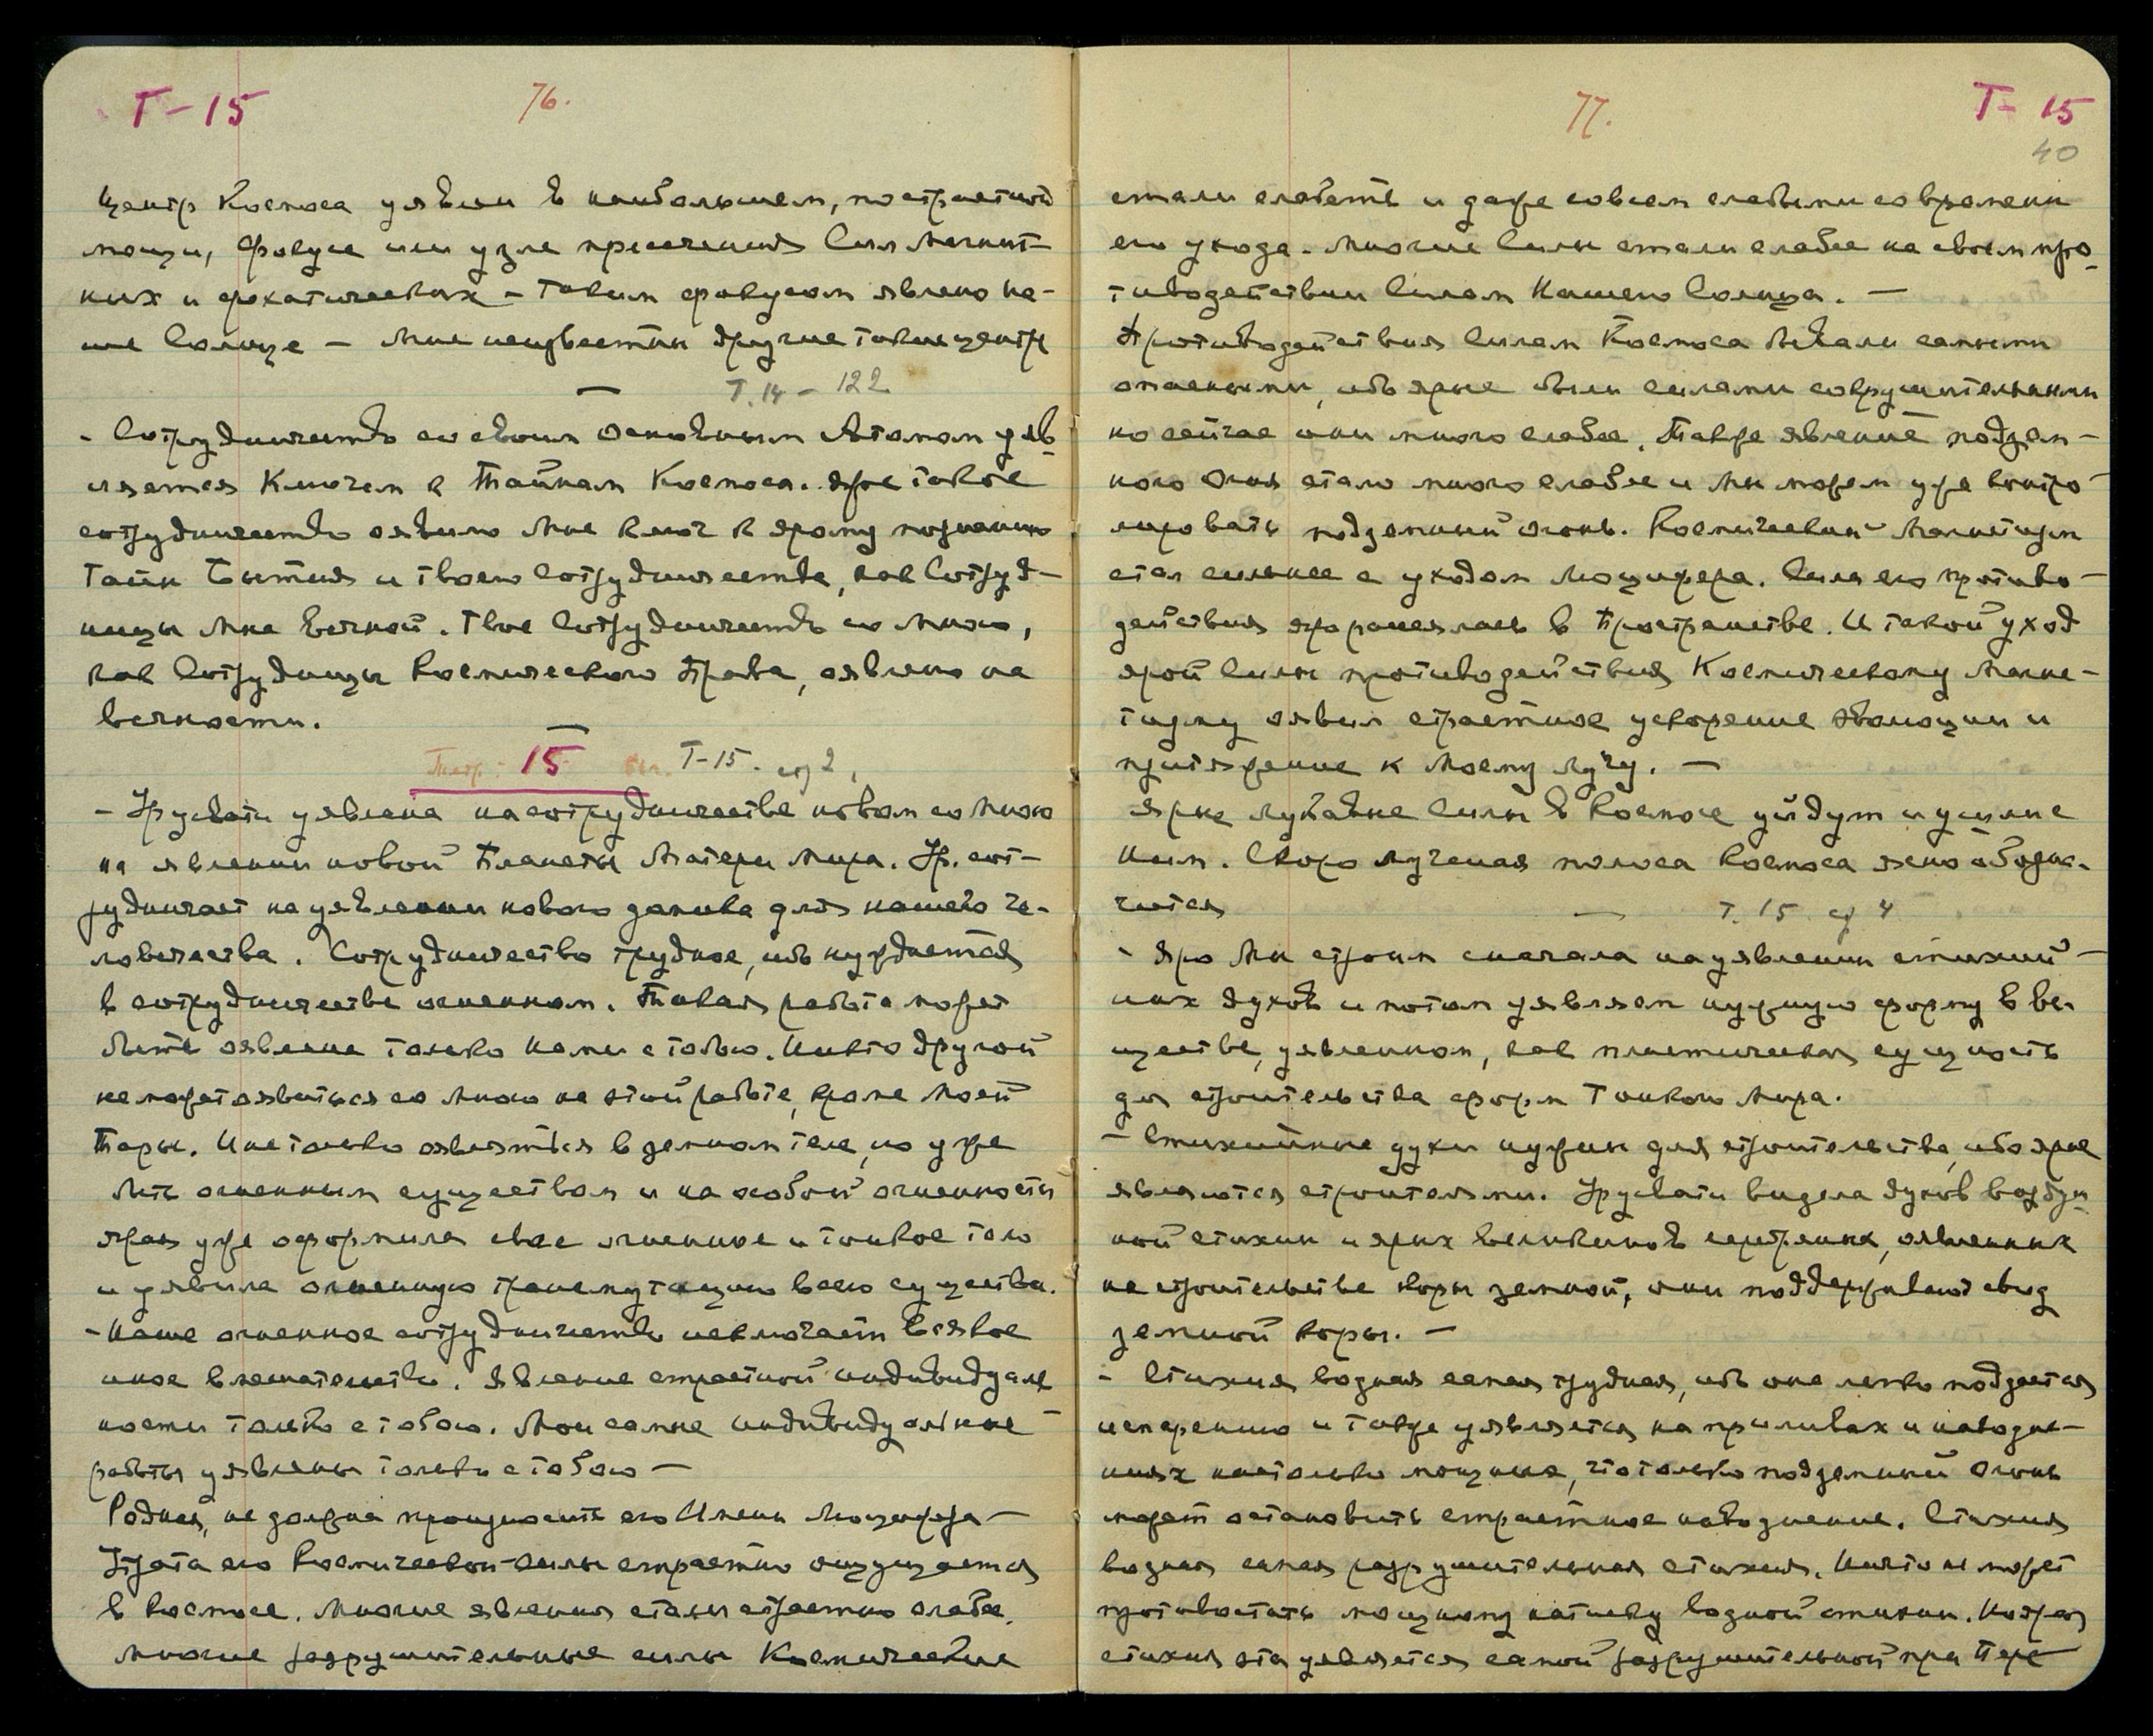 Т-15
76.
Центр Космоса уявлен в наибольшем, по страстной
мощи, фокусе или узле пресечения Сил магнит-
ных и фохатических – таким фокусом явлено На-
ше Солнце – Мне неизвестны другие такие центры
Т. 14 – 122
- Сотрудничество со своим Основным Атомом уяв-
ляется Ключом к Тайнам Космоса. Ярое такое
сотрудничество оявило Мне ключ к ярому познанию
Тайн Бытия и твоего Сотрудничества, как Сотруд-
ницы Мне Вечной. Твое Сотрудничество со Мною,
как Сотрудницы Космического Права, оявлено на
вечности.
Тетр. 15 Т-15. стр 2,
- Урусвати уявлена на сотрудничестве новом со Мною
на явлении новой Планеты Матери Мира. Ур. сот-
рудничает на уявлении нового для нашего че-
ловечества. Сотрудничество трудное, ибо нуждается
в сотрудничестве огненном. Такая работа может
быть оявлена только Нами с тобою. Никто другой
не может оявиться со Мною на этой работе, кроме Моей
Тары. И не только оявляться в земном теле, но уже
быть огненным существом и на особой огненности
ярая уже оформила свое огненное и тонкое тело
и уявила огненную трансмутацию всего существа.
- Наше огненное сотрудничество исключает всякое
иное вмешательство. Явление страстной индивидуаль
ности только с тобою. Мои самые индивидуальные
работы уявлены только с тобою –
Родная, не должна произносить его Имени Люцифера –
Утрата его Космической силы страстно ощущается
в Космосе. Многие явления стали страстно слабее,
Многие разрушительные силы Космические
77.
Т- 15
40
стали слабеть и даже совсем слабыми со времени
его ухода. Многие Силы стали слабее на своем про-
тиводействии Силам Нашего Солнца. –
Противодействия Силам Космоса бывали самыми
опасными, ибо ярые были силами сокрушительными
но сейчас они много слабее. Также явление подзем-
ного Огня стало много слабее и мы можем уже контро-
лировать подземный огонь. Космический Магнетизм
стал сильнее с уходом Люцифера. Сила его противо-
действия яро ронялась в Пространстве. И такой уход
ярой Силы противодействия Космическому Магне-
тизму оявил страстное ускорение эволюции и
притяжение к Моему Лучу. –
Ярые лукавые Силы в Космосе уйдут и
Ним. Скоро лучевая полоса Космоса ясно обозна-
чится
Т. 15 стр 4
- Яро Мы строим сначала на уявлении стихий-
ных духов и потом уявляем нужную форму в ве-
ществе, уявленном, как пластическая сущность
для строительства форм Тонкого Мира.
- Стихийные духи нужны для строительства, ибо ярые
являются строителями. Урусвати видела духов воздуш-
ной стихии и ярых великанов , оявленных
на строительстве коры земной, они поддерживают свод
земной коры. –
- Стихия водная самая трудная, ибо она легко поддается
испарению и также уявляется на приливах и наводне-
ниях настолько мощная, что только подземный огонь
может остановить страстное наводнение. Стихия
водная самая разрушительная стихия. Ничто не может
противостать мощному натиску водной стихии. Но ярая
стихия эта уявляется самой разрушительной при Пере